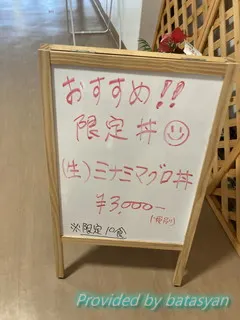 おすすめ!!
限定丼
(生)ミナミマグロ丼
¥3,000-
※限定10食
Provided by batasyan